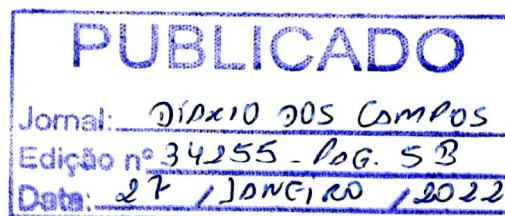 PUBLICADO
Jornal: DIÁRIO DOS CAMPOS
Edição nº 34255 - PAG. 5B
Data: 27 / JANEIRO / 2022